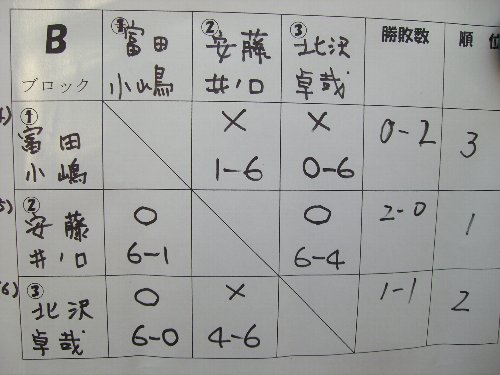 B
ブロック
① 富田
小嶋
② 安藤
井ノ口
③ 北沢
卓哉
勝敗数
順位
① 富田
小嶋
×
1-6
×
0-6
0-2
3
5)
② 安藤
井ノ口
○
6-1
○
6-4
2-0
1
6)
③ 北沢
卓哉
○
6-0
×
4-6
1-1
2